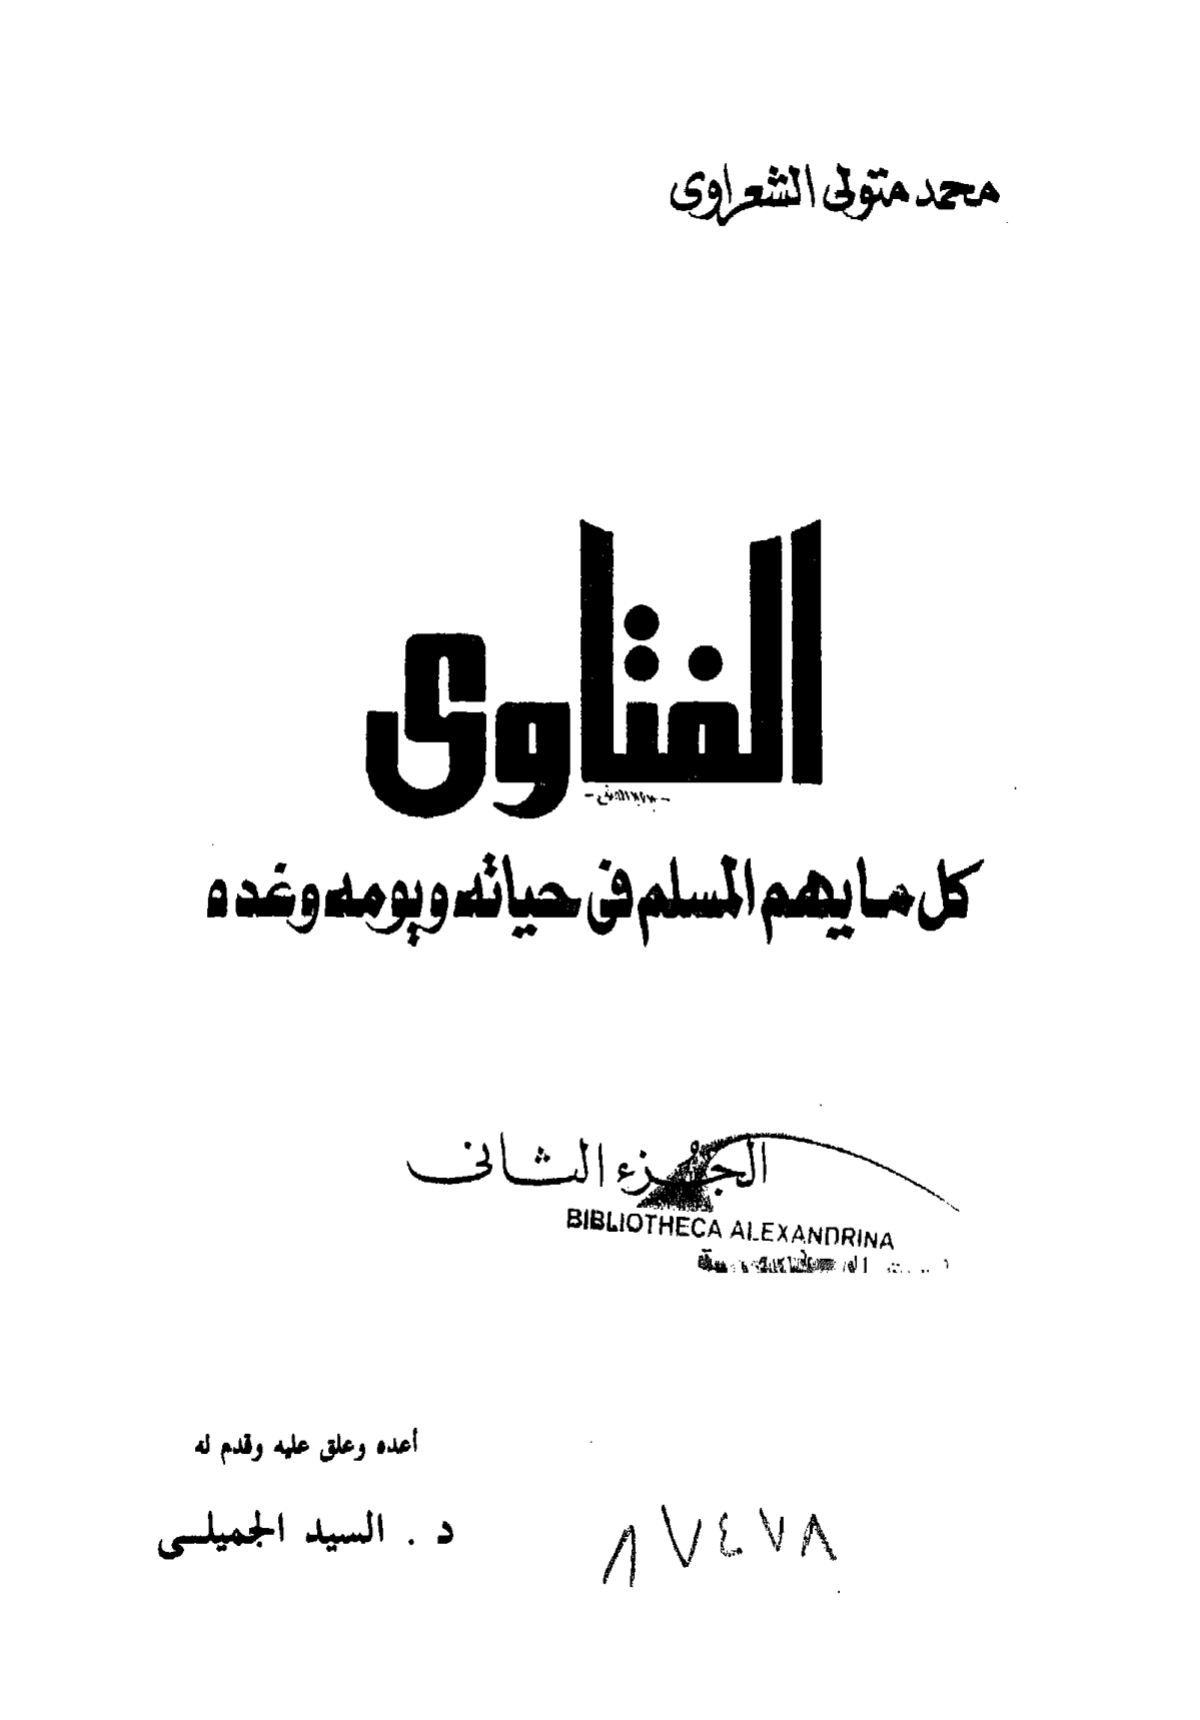 محمد متولى الشعراوى
الفتاوى
كل ما يهم المسلم فى حياته ويومه وغده
الجزء الثانى
BIBLIOTHECA ALEXANDRINA
أعده وعلق عليه وقدم له
د . السيد الجميلى
٨٧٤٧٨